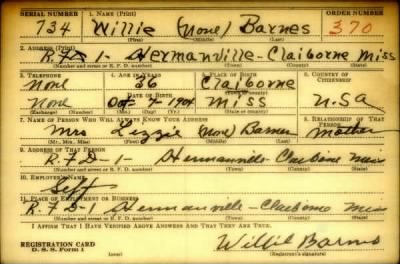 SERIAL NUMBER 1. NAME (Print) ORDER NUMBER
734 Willie (None) Barnes 370
(First) (Middle) (Last)
2. ADDRESS (Print)
R.F.D 1- Hermanville-Claiborne Miss
(Number and street or R. F. D. number) (Town) (County) (State)
3. TELEPHONE 4. AGE IN YEARS 5. PLACE OF BIRTH 6. COUNTRY OF CITIZENSHIP
None 36 Claiborne
DATE OF BIRTH (Town or county)
None Oct- 7-1904 Miss U.S.A
(Exchange) (Number) (Mo.) (Day) (Yr.) (State or country)
7. NAME OF PERSON WHO WILL ALWAYS KNOW YOUR ADDRESS 8. RELATIONSHIP OF THAT PERSON
Mrs Lizzie (None) Barnes Mother
(Mr., Mrs., Miss) (First) (Middle) (Last)
9. ADDRESS OF THAT PERSON
R.F.D-1- Hermanville-Claiborne Miss
(Number and street or R. F. D. number) (Town) (County) (State)
10. EMPLOYER'S NAME
Self
11. PLACE OF EMPLOYMENT OR BUSINESS
R.F.D-1 Hermanville-Claiborne Miss
(Number and street or R. F. D. number) (Town) (County) (State)
I AFFIRM THAT I HAVE VERIFIED ABOVE ANSWERS AND THAT THEY ARE TRUE.
REGISTRATION CARD Willie Barnes
D. S. S. Form 1 (over) (Registrant's signature)